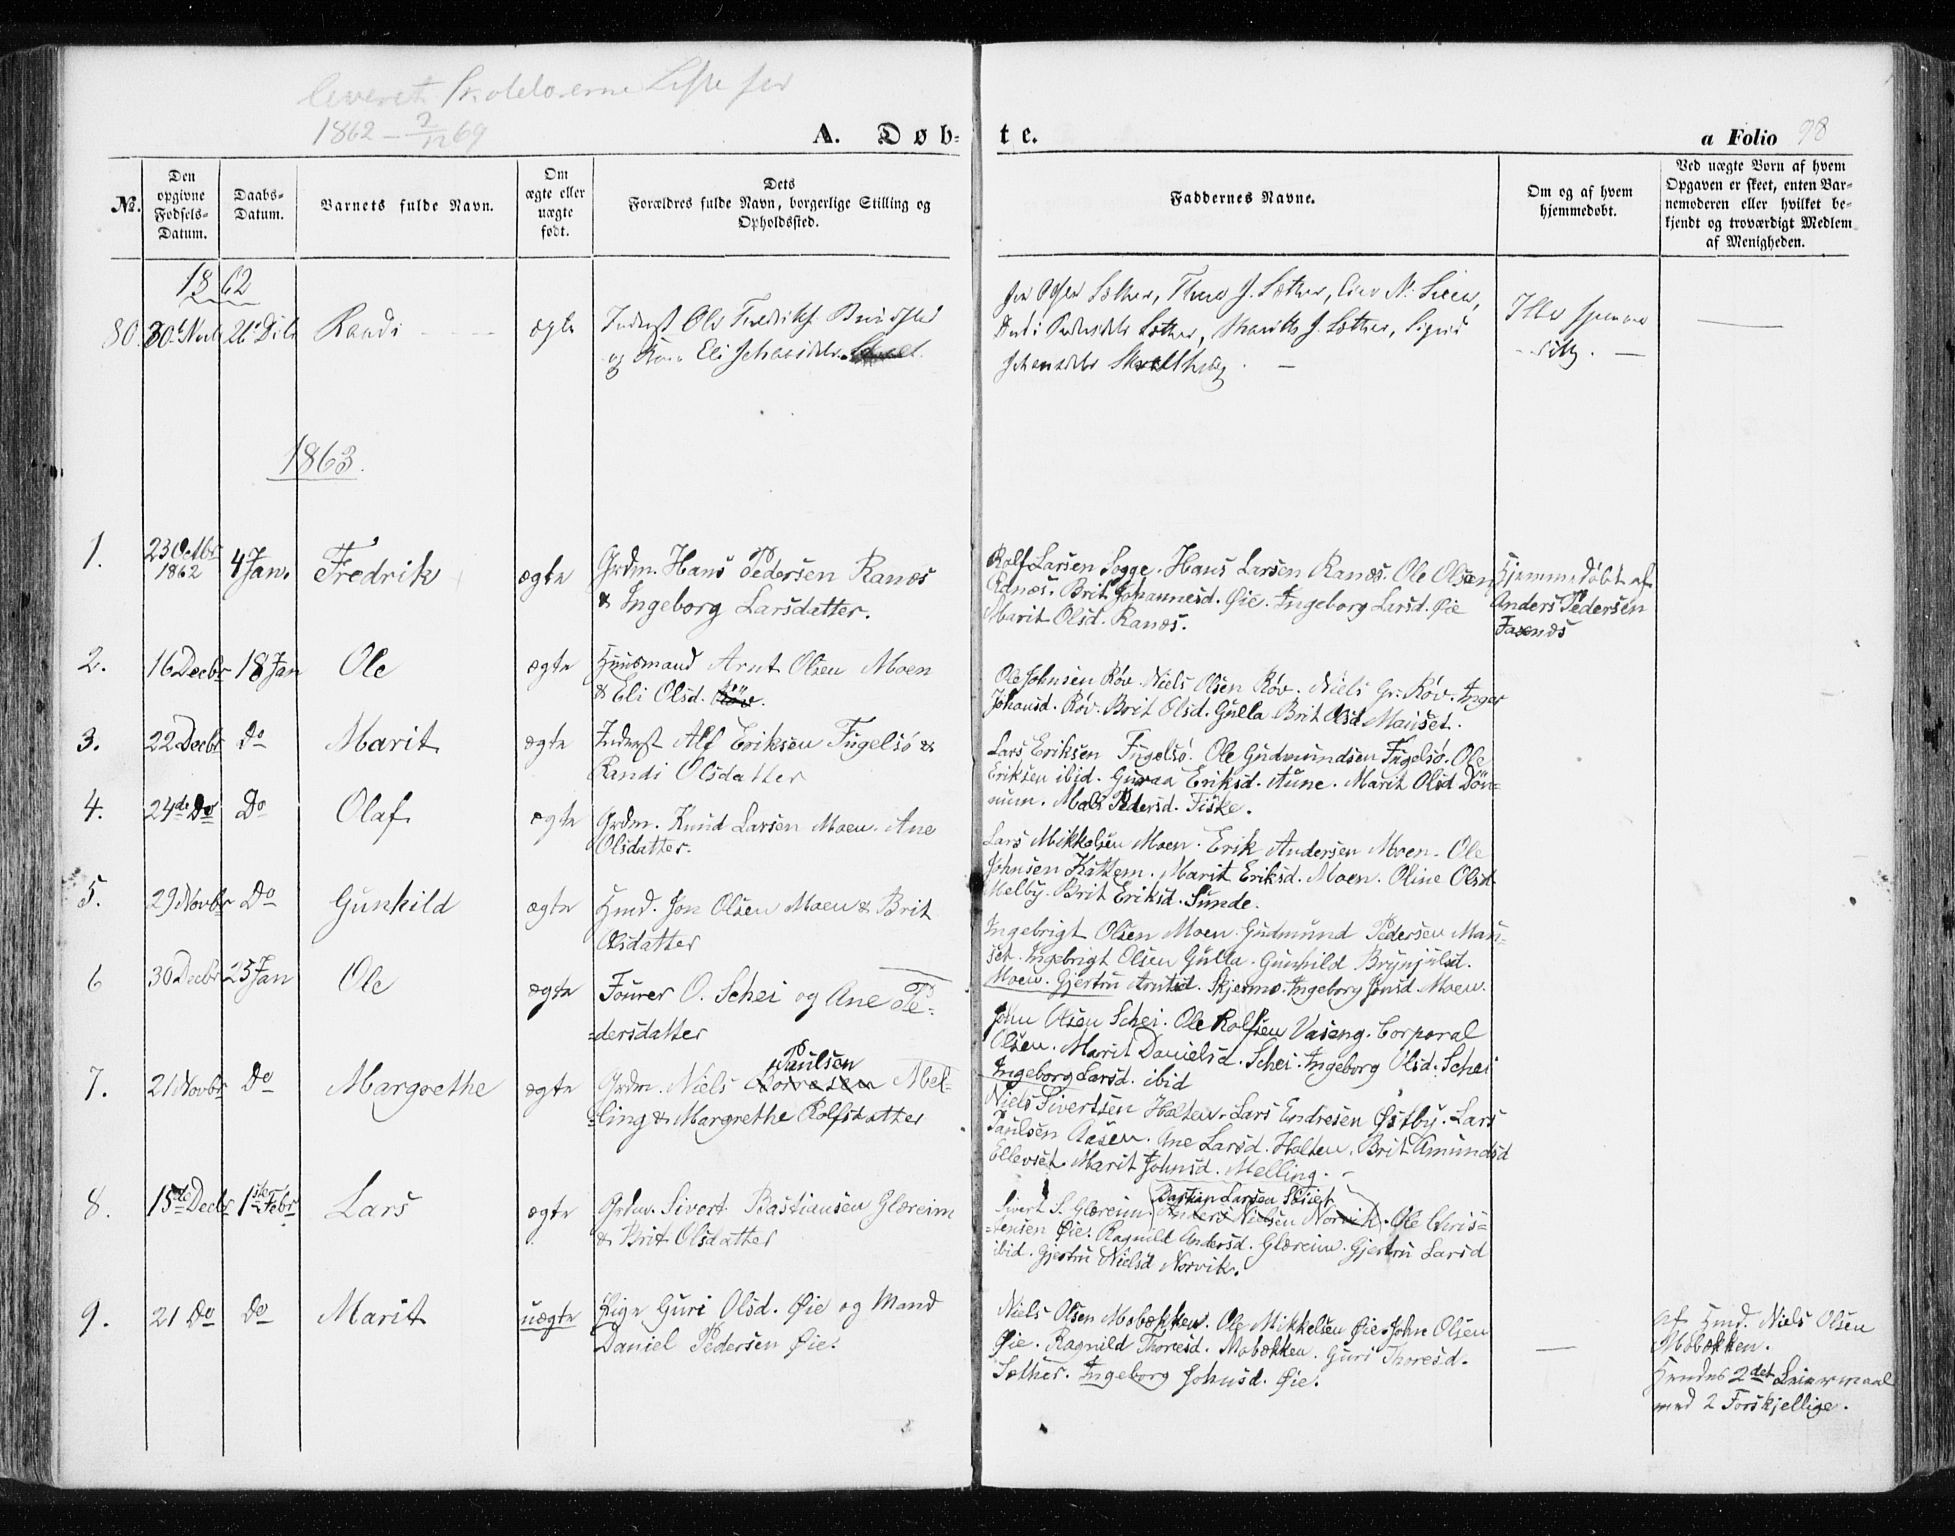 1862 – 2/12 69
A. Døb-
te.
a Folio 98
No.
Den opgivne Fødsels-Datum.
Daabs-Datum.
Barnets fulde Navn.
Om ægte eller uægte født.
Dets Forældres fulde Navn, borgerlige Stilling og Opholdssted.
Faddernes Navne.
Om og af hvem hjemmedøbt.
Ved uægte Børn af hvem Opgaven er skeet, enten Barnemoderen eller hvilket bekjendt og troværdigt Medlem af Menigheden.
1862
80. Randi ægte
og Eli
1863.
1. 23 Octbr 1862 4 Jan. Fredrik ægte
Grdm. Hans Pedersen Ranæs
& Ingeborg Larsdatter.
Rolf Larsen Sogge. Hans Larsen Ranæs. Ole Olsen
Ranæs. Brit Johannesd. Øie. Ingeborg Larsd. Øie
Marit Olsd. Ranæs.
Hjemmedøbt af
Anders Pedersen
2. 16 Decbr 18 Jan Ole ægte
Huusmand Arnt Olsen Moen
& Eli Olsd.
Ole Johnsen Røv. Niels Olsen Røv. Niels Gr. Røv. Inger
Johansd. Røv. Brit Olsd. Gulla Brit Olsd. Mauset.
3. 22 Decbr Do Marit ægte
Inderst Alf Eriksen Fugelsö &
Randi Olsdatter
Lars Eriksen Fugelsø. Ole Gudmundsen Fugelsø. Ole
Eriksen ibid. Guraa Eriksd. Aune. Marit Olsd Dön-
num. Mali Pedersd. Fiske.
4. 24de Do Do Olaf ægte
Grdm. Knud Larsen Moen. Ane
Olsdatter.
Lars Mikkelsen Moen. Erik Andersen Moen. Ole
Johnsen Kattem. Marit Eriksd. Moen. Oline Olsd.
Melby. Brit Eriksd. Sunde.
5. 29 Novbr Do Gunhild ægte
Hmd. Jon Olsen Moen & Brit
Olsdatter
Ingebrigt Olsen Moen. Gudmund Pedersen Mau-
set. Ingebrigt Olsen Gulla. Gunhild Brynjulsd.
Moen. Gjertru Arntsd. Skjermo. Ingeborg Jonsd. Moen.
6 30 Decbr 25 Jan Ole ægte
Fourer O. Schei og Ane Pe-
dersdatter
John Olsen Schei. Ole Rolfsen Vaseng. Corporal
Olsen. Marit Danielsd. Schei. Ingeborg Olsd. Schei
Ingeborg Larsd. ibid
7. 21 Novbr Do Margrethe ægte
Paulsen
Grdm. Niels Mel-
ling & Margrethe Rolfsdatter
Niels Sivertsen Halten. Lars Endresen Østby. Lars
Paulsen Aasen. Ane Larsd. Halten. Brit Amundsd
Ellevset. Marit Johnsd. Melling.
8. 15de Decbr 1ste Febr. Lars ægte
Grdm. Sivert Bastiansen Glæreim
& Brit Olsdatter
Bastian Larsen
Sivert S. Glæreim. Anders Nielsen Norvik. Ole Chris-
tensen Øie. Ragnild Andersd. Glæreim. Gjertru Larsd
ibid. Gjertru Nielsd Norvik.
9. 21 Do Do Marit uægte
Pige Guri Olsd. Øie og Mand
Daniel Pedersen Øie.
Niels Olsen Mobækken. Ole Mikkelsen Øie. John Olsen
Øie. Ragnild Thoresd. Mobækken. Guri Thoresd.
Sæther. Ingeborg Johnsd. Øie.
af Hmd. Niels Olsen
Mobækken.
Hendes 2det Leiermaal
med 2 Forskjellige.